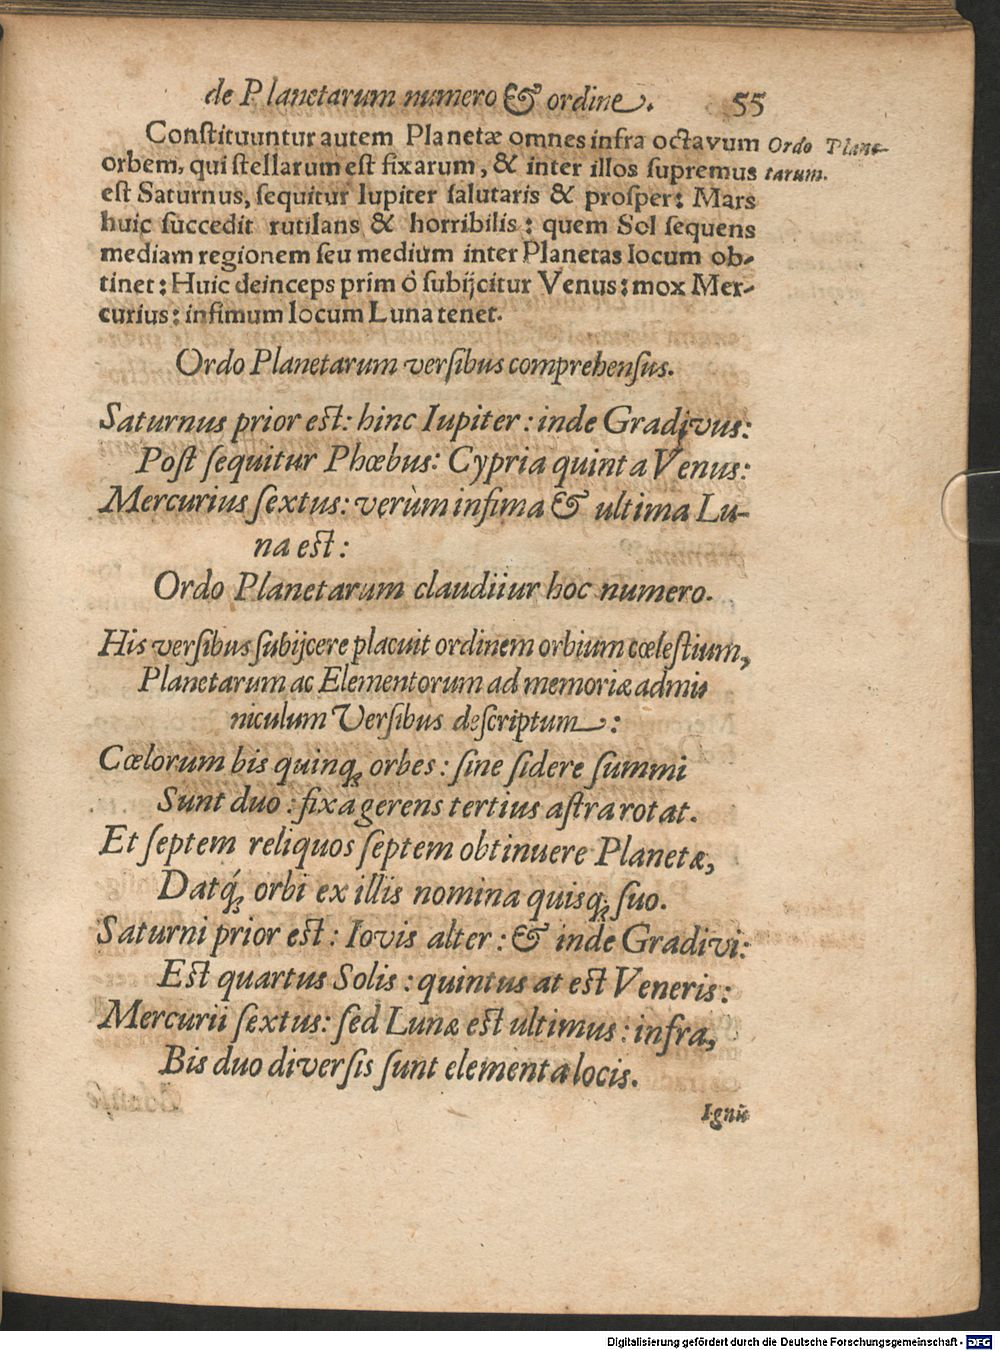 de Planetarum numero & ordine. 55
Constituuntur autem Planetæ omnes infra octavum
orbem, qui stellarum est fixarum, & inter illos supremus
est Saturnus, sequitur Iupiter salutaris & prosper: Mars
huic succedit rutilans & horribilis: quem Sol sequens
mediam regionem seu medium inter Planetas locum ob-
tinet: Huic deinceps prim ô subijcitur Venus: mox Mer-
curius: infimum locum Luna tenet.
Ordo Plane-
tarum.
Ordo Planetarum versibus comprehensus.
Saturnus prior est: hinc Iupiter: inde Gradivus:
Post sequitur Phœbus: Cypria quinta Venus:
Mercurius sextus: verùm infima & ultima Lu-
na est:
Ordo Planetarum claudiiur hoc numero.
His versibus subijcere placuit ordinem orbium cœlestium,
Planetarum ac Elementorum ad memoriæ admi-
niculum Versibus descriptum:
Cœlorum bis quinq; orbes: sine sidere summi
Sunt duo: fixa gerens tertius astra rotat.
Et septem reliquos septem obtinuere Planetæ,
Datq́; orbi ex illis nomina quisq; suo.
Saturni prior est: Iovis alter: & inde Gradivi:
Est quartus Solis: quintus at est Veneris:
Mercurii sextus: sed Lunæ est ultimus: infra,
Bis duo diversis sunt elementa locis.
Ignis
Digitalisierung gefördert durch die Deutsche Forschungsgemeinschaft - DFG